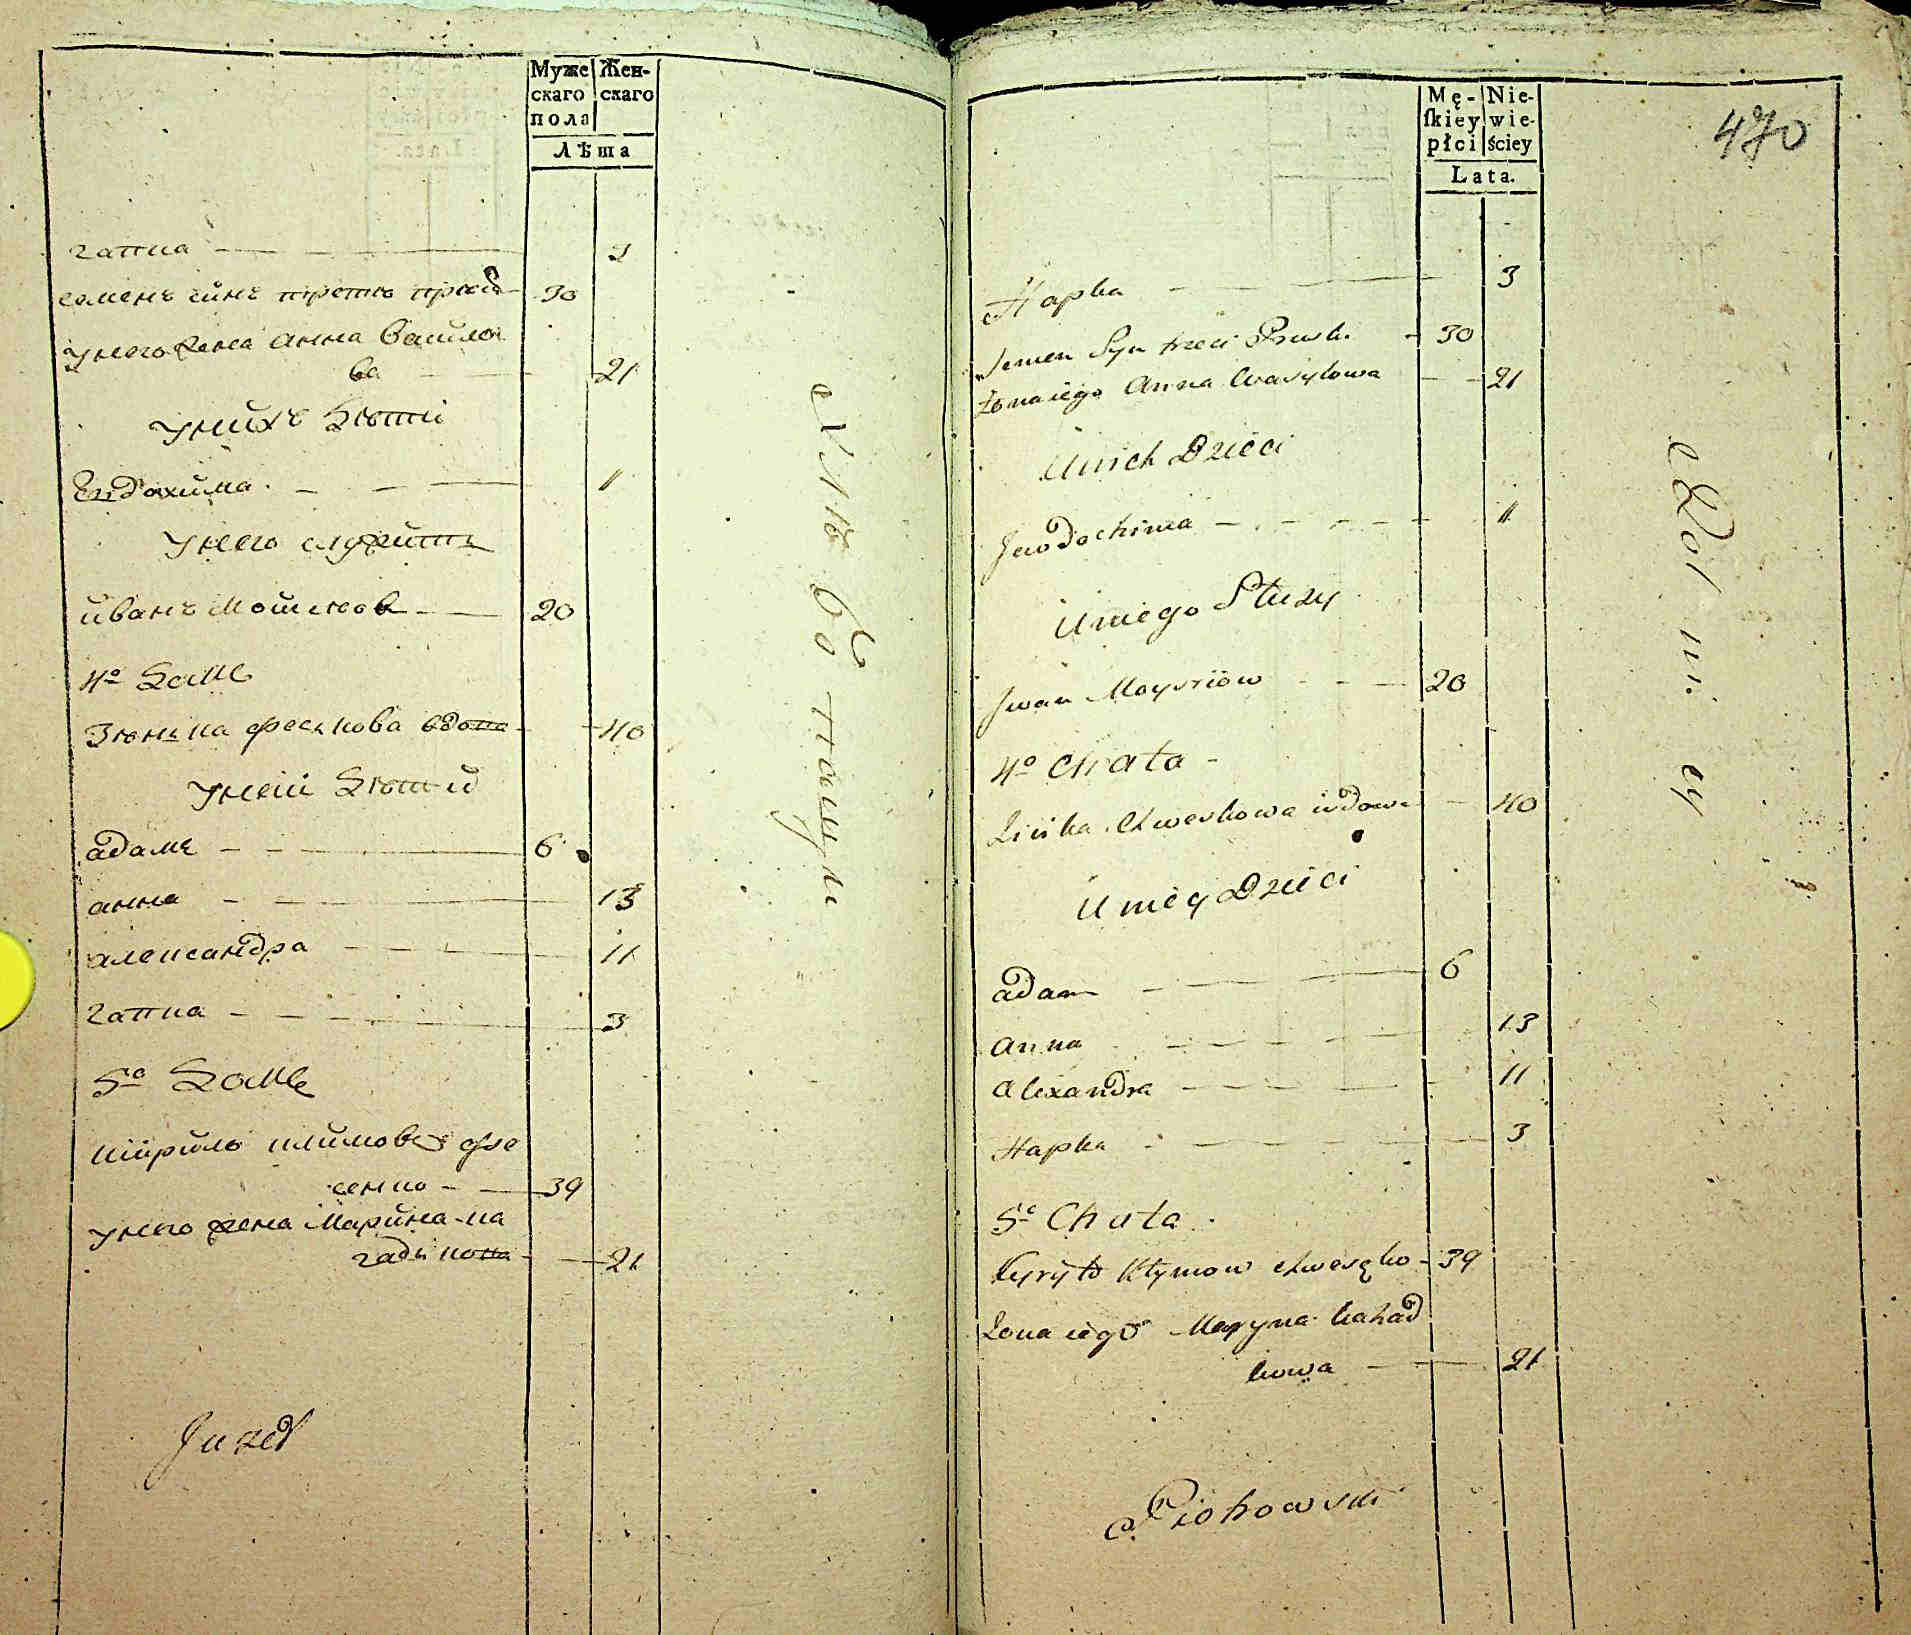 Муже
скаго
пола
Жен-
скаго
Лѣта
гапка 3
семенъ синъ третъ 30
унего жена анна васило
ва 21
унихъ дѣти
Евдохима 1
унего служитъ
иванъ 20
4º
Зѣнька феськова вдова 40
унеи дѣтий
адамъ 6
анна 13
александра 11
гапка 3
5º
кирило климовъ фе
сенко 39
унего жена Марина ка
гадь кова 21
Juzef
Mę-
ſkiey
płci
Nie-
wie-
ściey
Lata.
470
Hapka 3
Semen Syn trzeci 30
Żona iego Anna Wasylowa 21
U nich Dzieci
Jewdochima 1
U niego Służy
Jwan 20
4º Chata
Zinka Chweskowa wdowa 40
U niey Dzieci
adam 6
Anna 13
Alexandra 11
Hapka 3
5º Chata
Kyryło Kłymow chwesko 39
Żona iego Maryna kahad
kowa 21
Piotrowski